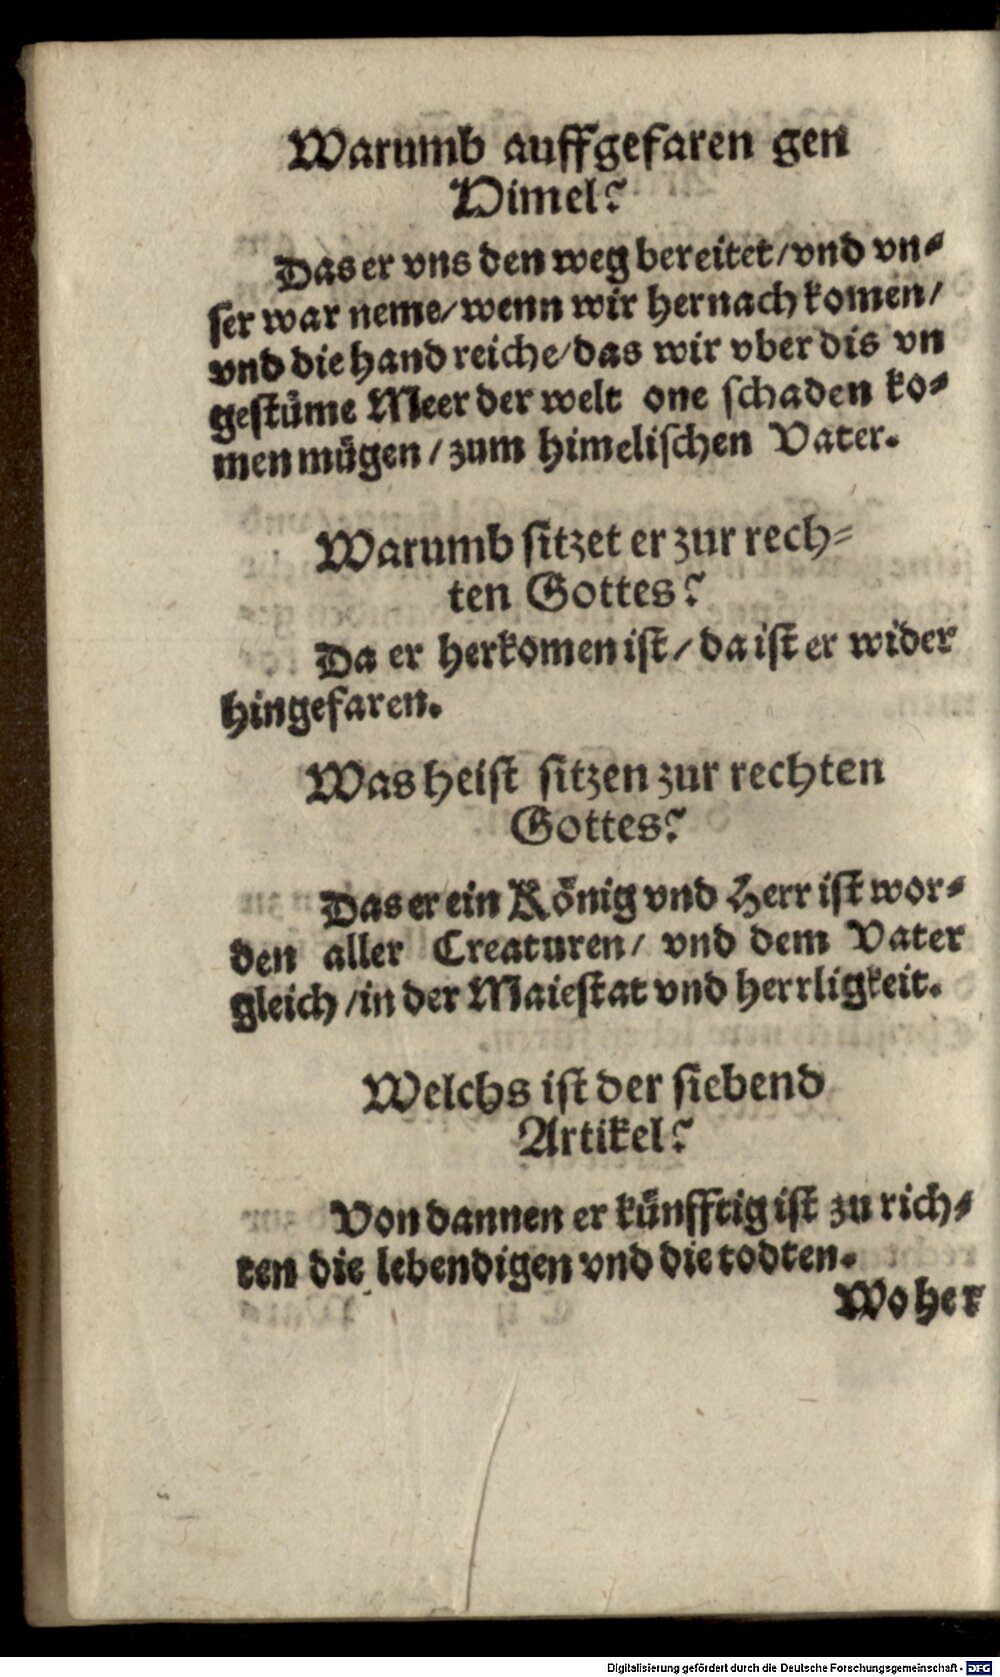 Warumb auffgefaren gen
Himel?
Das er vns den weg bereitet/vnd vn⸗
ser war neme/wenn wir hernach komen/
vnd die hand reiche/das wir vber dis vn
gestüme Meer der welt one schaden ko⸗
men mügen/zum himelischen Vater.
Warumb sitzet er zur rech⸗
ten Gottes?
Da er herkomen ist/da ist er wider
hingefaren.
Was heist sitzen zur rechten
Gottes?
Das er ein König vnd Herr ist wor⸗
den aller Creaturen/ vnd dem Vater
gleich/in der Maiestat vnd herrligkeit.
Welchs ist der siebend
Artikel?
Von dannen er künfftig ist zu rich⸗
ten die lebendigen vnd die todten.
Woher
Digitalisierung gefördert durch die Deutsche Forschungsgemeinschaft - DFG